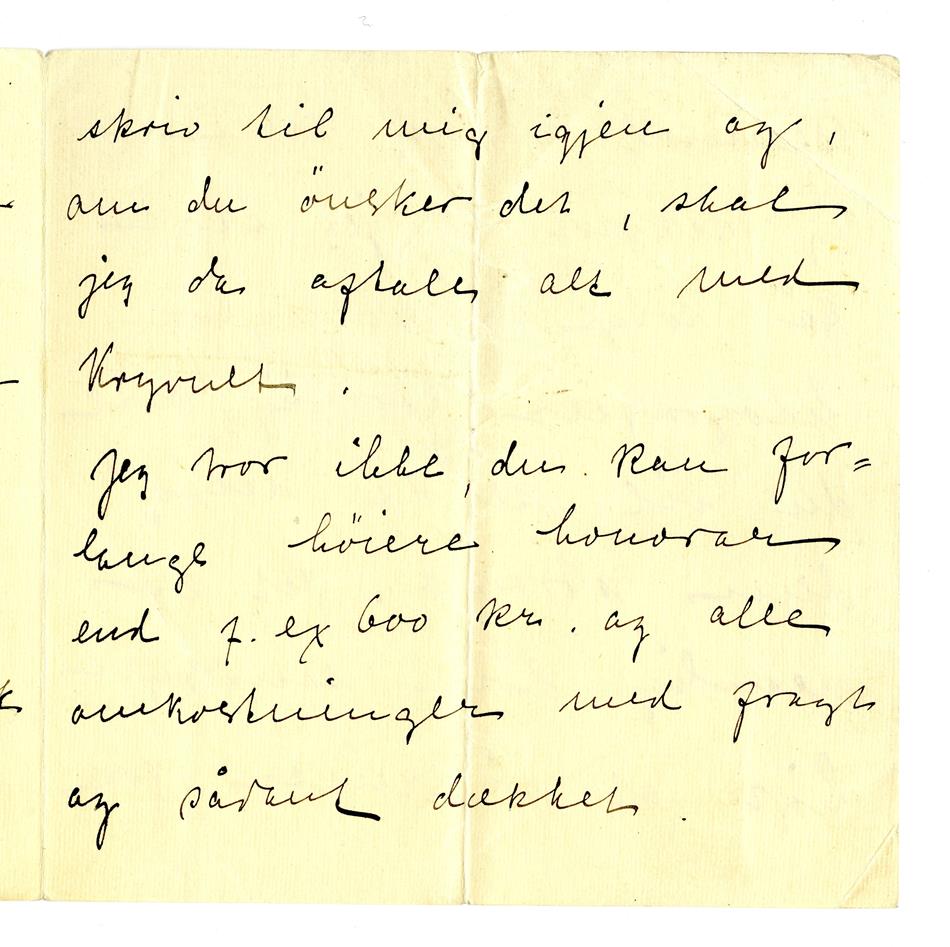 skriv til mig igjen og,
om du önsker det, skal
jeg da aftale alt med
Kryvult.
Jeg tror ikke, du kan for=
lange höiere honorar
end f. ex 600 kr. og alle
omkostninger med fragt
og sådant dækket.